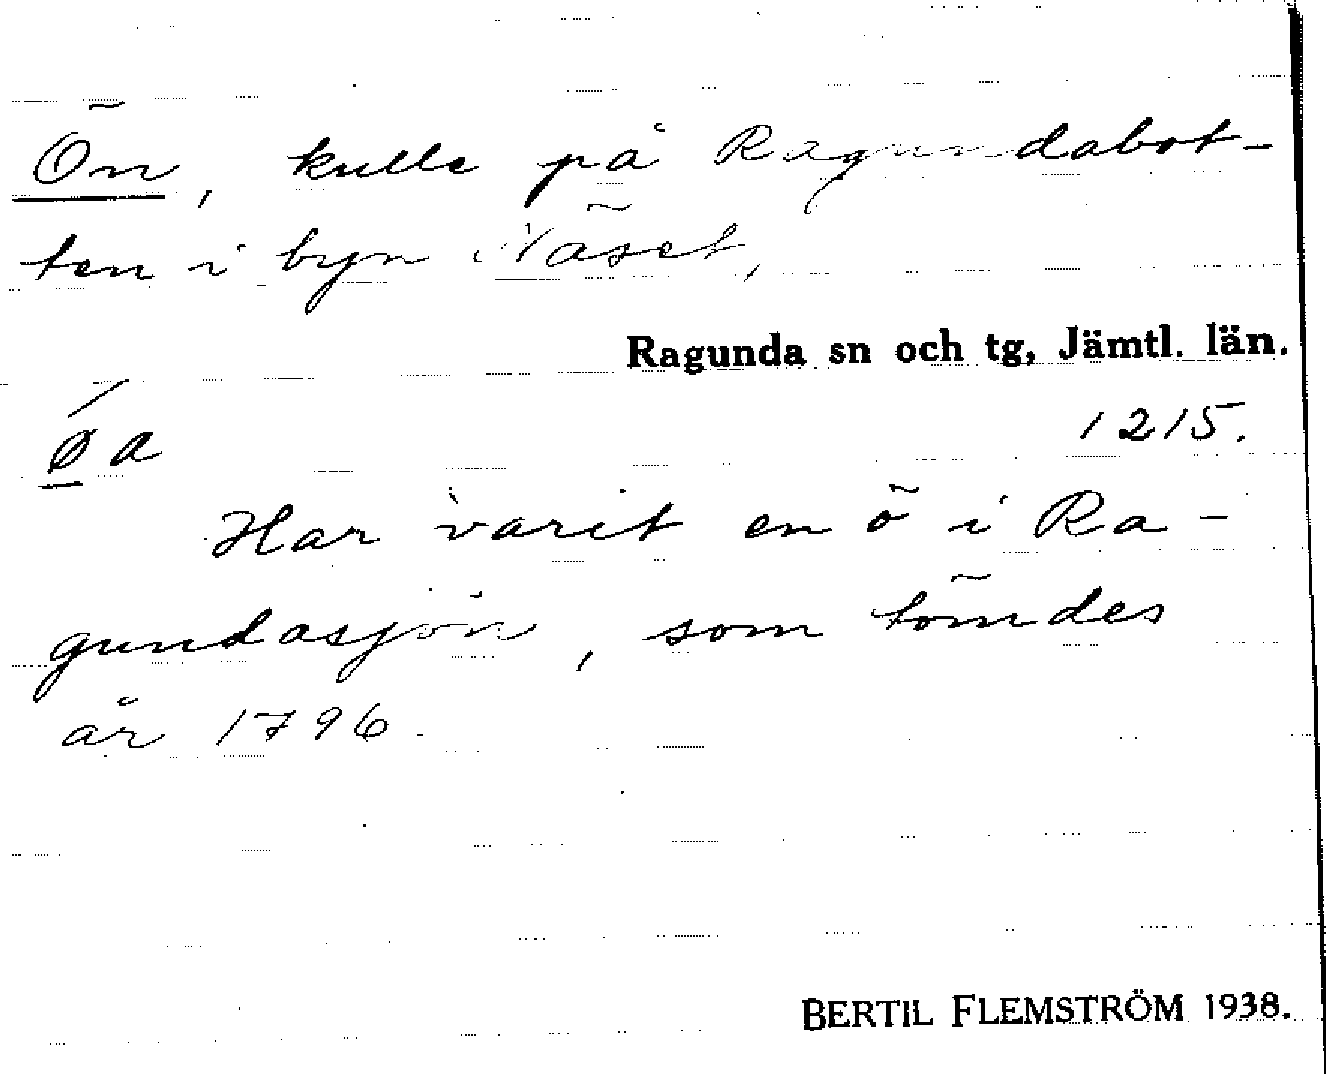 Ön, kulle på Ragundabot-
ten i byn Näset,
Ragunda sn och tg, Jämtl. län.
ǿa 1215.
Har varit en ö i Ra-
gundasjön, som tömdes
år 1796.
BERTIL FLEMSTRÖM 1938.